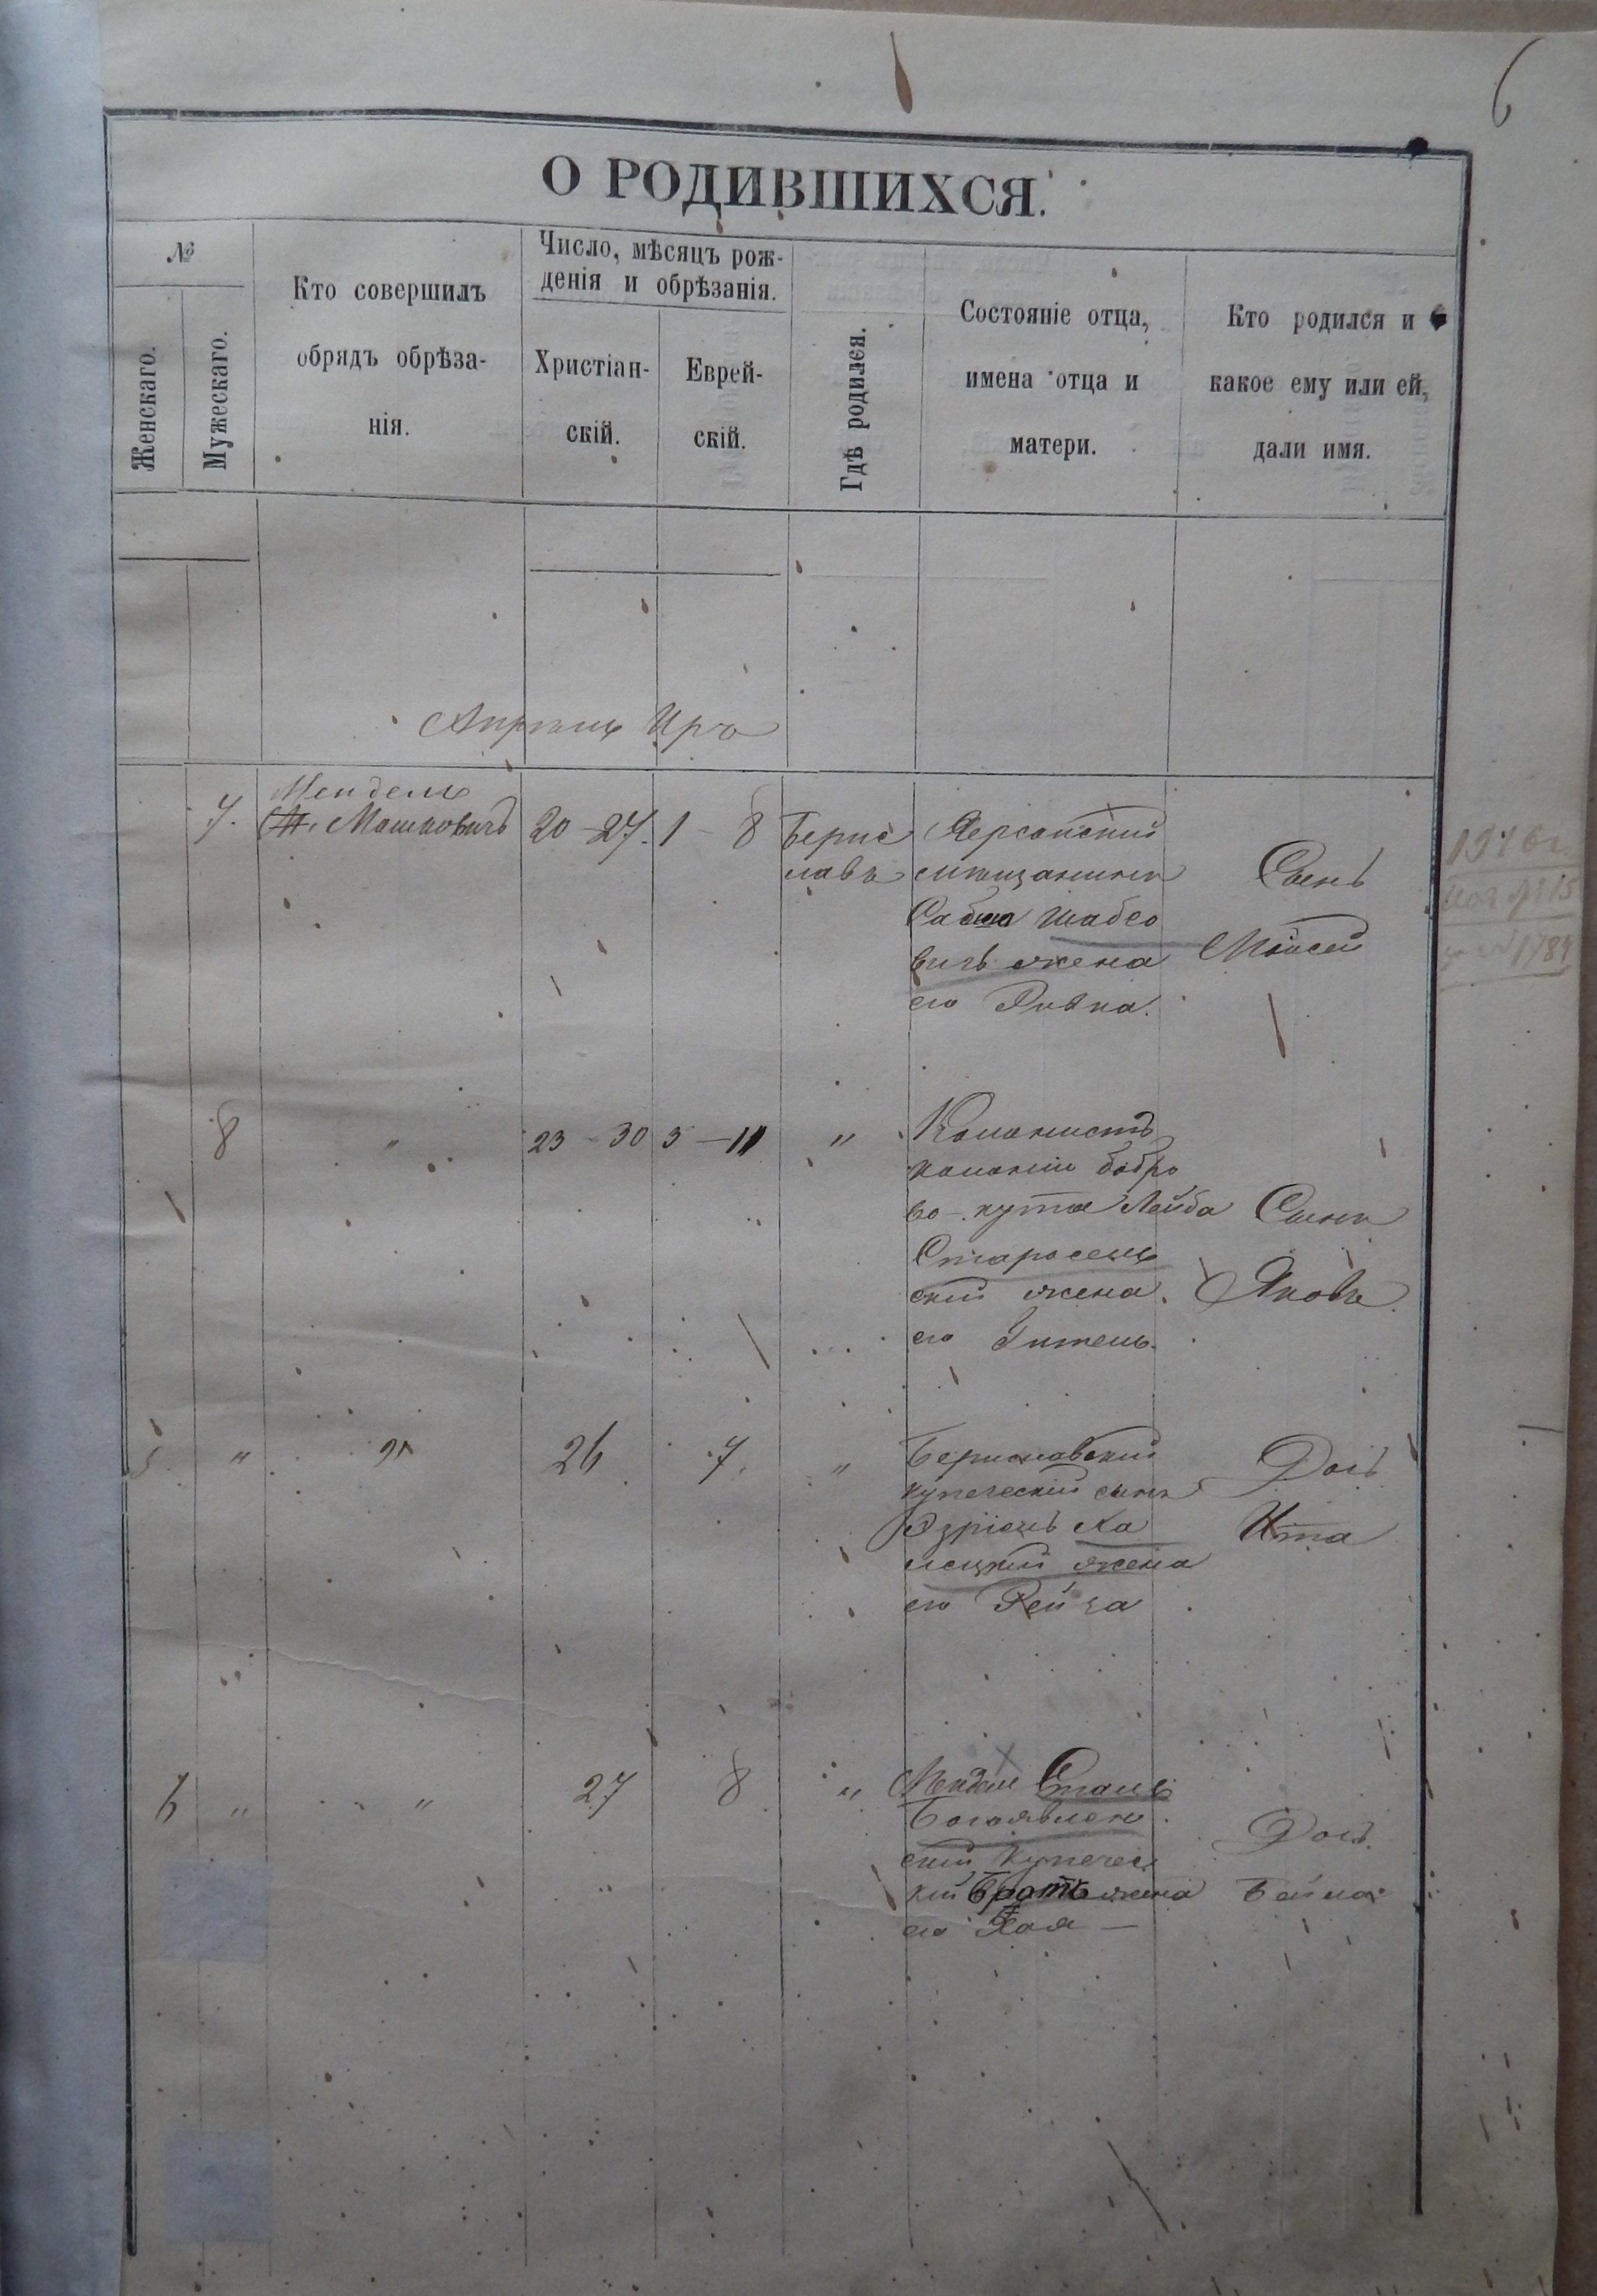 6
О РОДИВШИХСЯ.
№
Женскаго.
Мужескаго.
Кто совершилъ
обрядъ обрѣза-
нія.
Число, мѣсяцъ рож-
денія и обрѣзанія.
Христіан-
скій.
Еврей-
скій.
Гдѣ родился.
Состояніе отца,
имена отца и
матери.
Кто родился и
какое ему или ей,
дали имя.
Апрѣль Иръ
7.
Мендель
Машковичъ
20-27.
1-8
Берис
лавъ
Херсонский
мѣщанинъ
Шабсо
вичъ жена
его Ривка.
Сынъ
Мойсей
8
"
23-30
"
Колонистъ
колоніи бобро
во-кута Лейба
Старосель
скій жена
его Гитель.
Сынъ
Яковъ.
5
"
"
26
7.
"
Бериславскій
купеческій сынъ
Эзріель Ка
жена
его Рейза
Дочь
Ита
6
"
"
27
8
"
Мендель
Богоявлен
скій купечес
кій братъ жена
его Хая —
Дочь
Бейла
1916г.